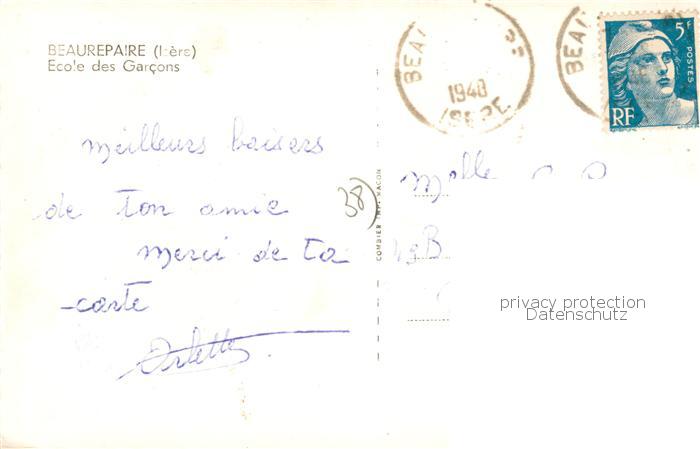 BEAUREPAIRE (Isère)
Ecole des Garçons
meilleurs baisers
de ton amie
merci de ta
carte
Arlette
38
COMBIER IMP. MACON
BEAU RE
1948
ISERE
BEAU
5F
POSTES
RF
Melle
privacy protection
Datenschutz